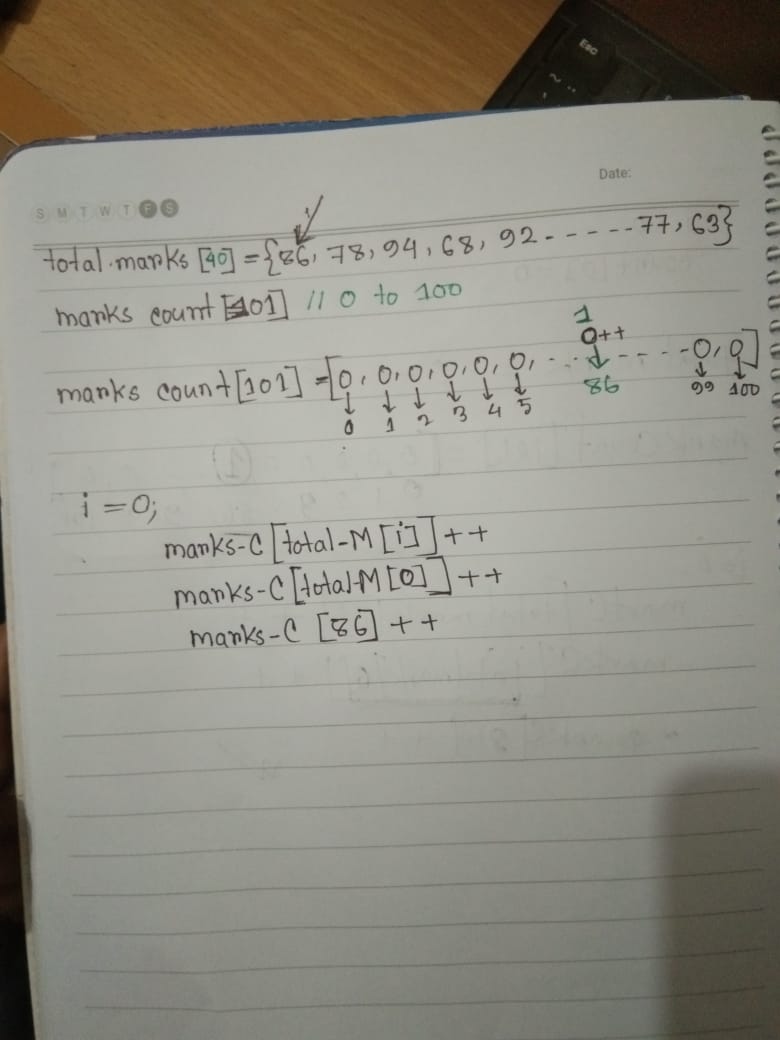 Esc
Date:
S M T W T F S
i
total-marks [40] = {86, 78, 94, 68, 92 - - - - - - 77, 63}
marks count [101] // 0 to 100
1
0++
marks count [101] = [0, 0, 0, 0, 0, 0, - - - - - - - 0, 0]
0 1 2 3 4 5 86 99 100
i = 0;
marks-C [total-M [i]] ++
marks-C [total-M [0]] ++
marks-C [86] ++